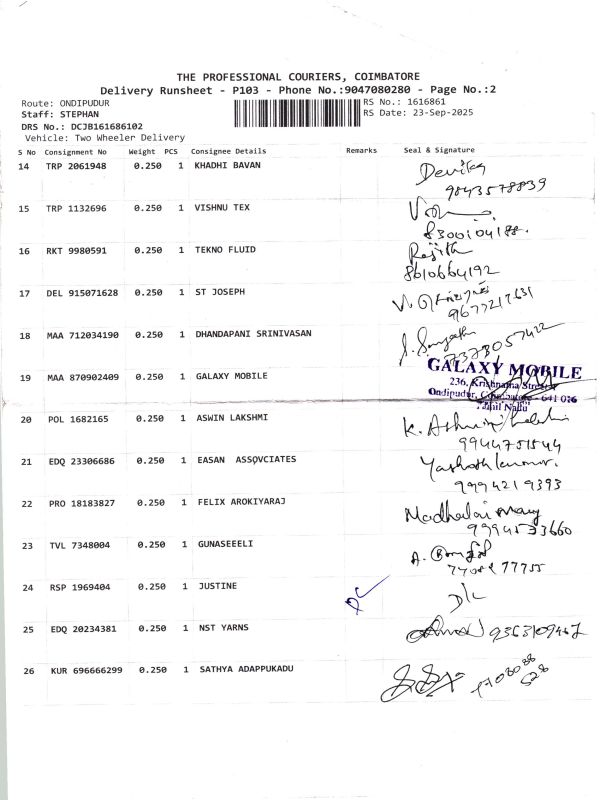 THE PROFESSIONAL COURIERS, COIMBATORE
Delivery Runsheet - P103 - Phone No.:9047080280 - Page No.:2
Route: ONDIPUDUR RS No.: 1616861
Staff: STEPHAN RS Date: 23-Sep-2025
DRS No.: DCJB161686102
Vehicle: Two Wheeler Delivery
S No Consignment No Weight PCS Consignee Details Remarks Seal & Signature
14 TRP 2061948 0.250 1 KHADHI BAVAN Devika
9843578839
15 TRP 1132696 0.250 1 VISHNU TEX
8300104188.
16 RKT 9980591 0.250 1 TEKNO FLUID Rejith
8610664192
17 DEL 915071628 0.250 1 ST JOSEPH
9677217631
18 MAA 712034190 0.250 1 DHANDAPANI SRINIVASAN
7373057422
19 MAA 870902409 0.250 1 GALAXY MOBILE GALAXY MOBILE
236, Krishnama Street
Ondipudur, Coimbatore - 641 016
Tamil Nadu
20 POL 1682165 0.250 1 ASWIN LAKSHMI K.
9944751544
21 EDQ 23306686 0.250 1 EASAN ASSQVCIATES
9994219393
22 PRO 18183827 0.250 1 FELIX AROKIYARAJ Madhalai Mary
9994533660
23 TVL 7348004 0.250 1 GUNASEEELI A.
24 RSP 1969404 0.250 1 JUSTINE D/L
25 EDQ 20234381 0.250 1 NST YARNS 9363109467
26 KUR 696666299 0.250 1 SATHYA ADAPPUKADU